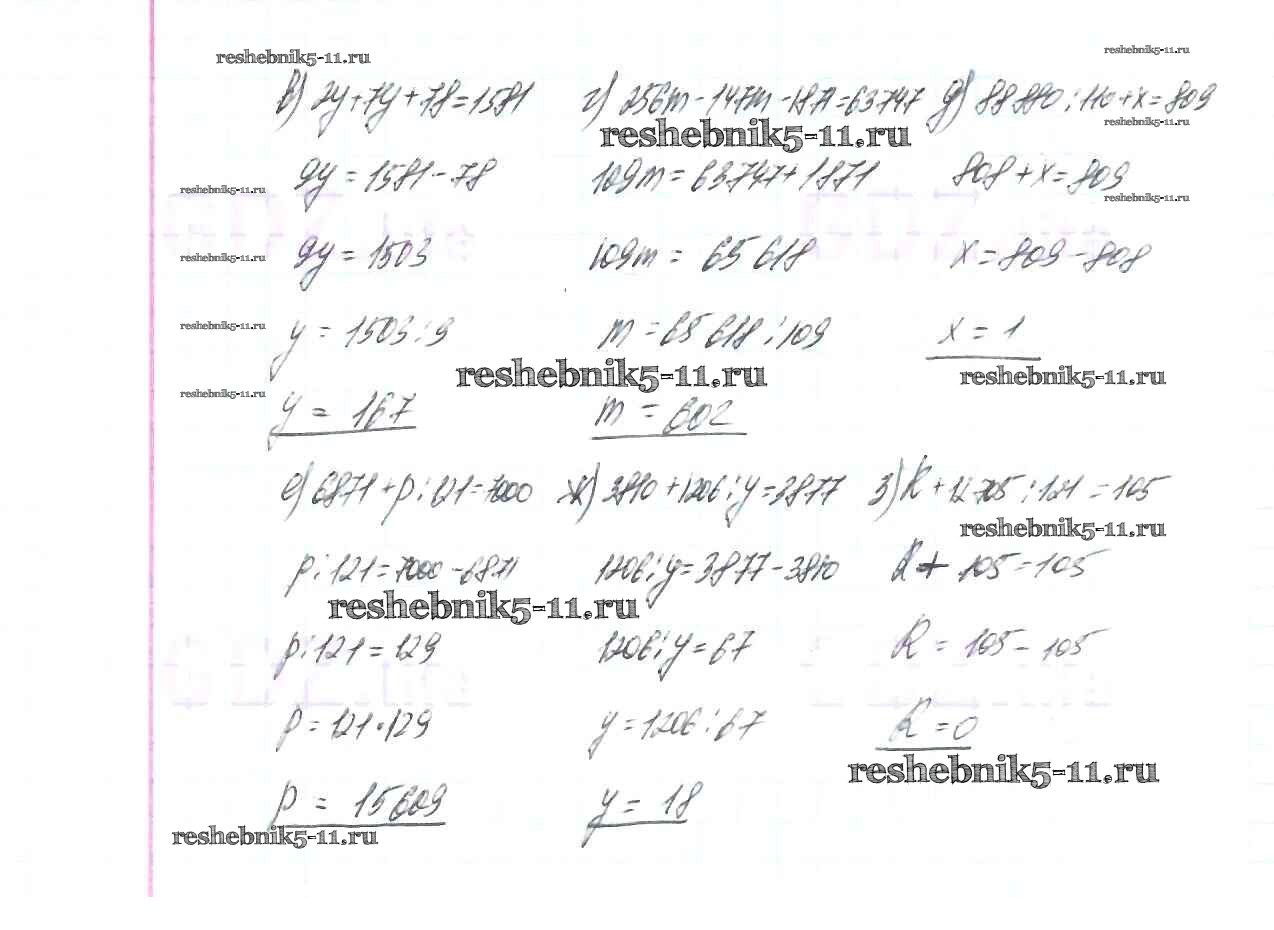 reshebnik5-11.ru reshebnik5-11.ru
в) 2y+7y+78=1581 г) 256m-147m-1871=63747 д) 88880:110+x=809
reshebnik5-11.ru reshebnik5-11.ru
9y=1581-78 109m=63747+1871 808+x=809
reshebnik5-11.ru reshebnik5-11.ru
9y=1503 109m=65618 x=809-808
reshebnik5-11.ru
y=1503:9 m=65618:109 x=1
reshebnik5-11.ru
reshebnik5-11.ru reshebnik5-11.ru
reshebnik5-11.ru
y=167 m=602
е) 6871+p:121=7000 ж) 3810+1206:y=3877 з) K+12705:121=105
reshebnik5-11.ru
p:121=7000-6871 1206:y=3877-3810 K+105=105
reshebnik5-11.ru
p:121=129 1206:y=67 K=105-105
p=121·129 y=1206:67 K=0
reshebnik5-11.ru
p=15609 y=18
reshebnik5-11.ru